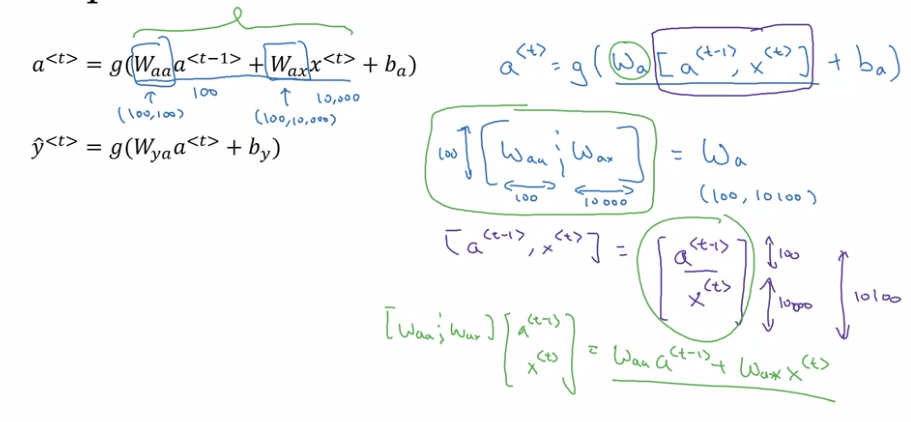 a<t> = g(Waa a<t−1> + Wax x<t> + ba)
↑ 100 ↑ 10,000
(100,100) (100,10,000)
ŷ<t> = g(Wya a<t> + by)
a<t> = g(Wa [a<t-1>, x<t>] + ba)
100 [Waa ; Wax] = Wa
100 10000 (100, 10100)
[a<t-1>, x<t>] = [a<t-1> x<t>] 100 10000 10100
[Waa ; Wax] [a<t-1> x<t>] = Waa a<t-1> + Wax x<t>